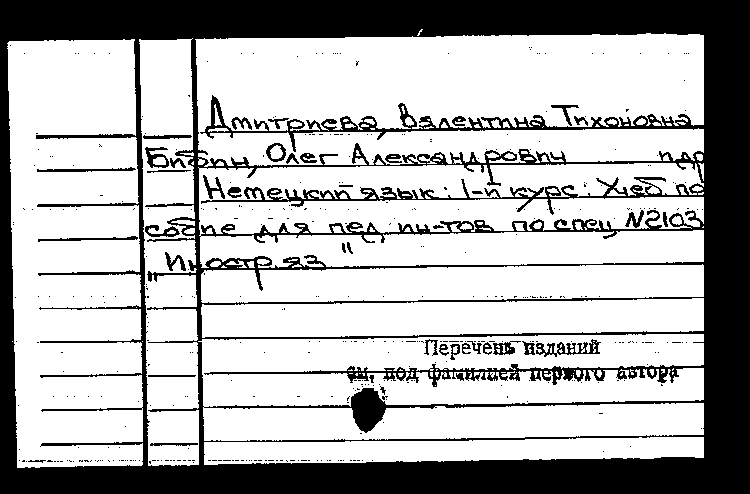 Дмитриева, Валентина Тихоновна
Бибин, Олег Александрович и др
Немецкий язык: 1-й курс: Учеб по
собие для пед. ин-тов по спец N2103
"Иностр. яз"
Перечень изданий
см. под фамилией первого автора